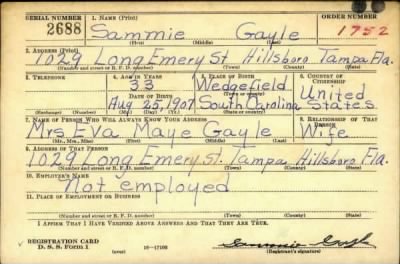 SERIAL NUMBER 1. NAME (Print) ORDER NUMBER
2688 Sammie Gayle 1752
(First) (Middle) (Last)
2. ADDRESS (Print)
1029 Long Emery St. Hillsboro Tampa Fla.
(Number and street or R. F. D. number) (Town) (County) (State)
3. TELEPHONE 4. AGE IN YEARS 5. PLACE OF BIRTH 6. COUNTRY OF CITIZENSHIP
33 Wedgefield United
DATE OF BIRTH (Town or county)
Aug 25, 1907 South Carolina States
(Exchange) (Number) (Mo.) (Day) (Yr.) (State or country)
7. NAME OF PERSON WHO WILL ALWAYS KNOW YOUR ADDRESS 8. RELATIONSHIP OF THAT PERSON
Mrs Eva Maye Gayle Wife
(Mr., Mrs., Miss) (First) (Middle) (Last)
9. ADDRESS OF THAT PERSON
1029 Long Emery St. Tampa Hillsboro Fla.
(Number and street or R. F. D. number) (Town) (County) (State)
10. EMPLOYER'S NAME
Not employed
11. PLACE OF EMPLOYMENT OR BUSINESS
(Number and street or R. F. D. number) (Town) (County) (State)
I AFFIRM THAT I HAVE VERIFIED ABOVE ANSWERS AND THAT THEY ARE TRUE.
REGISTRATION CARD
D. S. S. FORM 1 (over) 16—17105 Sammie Gayle
(Registrant's signature)